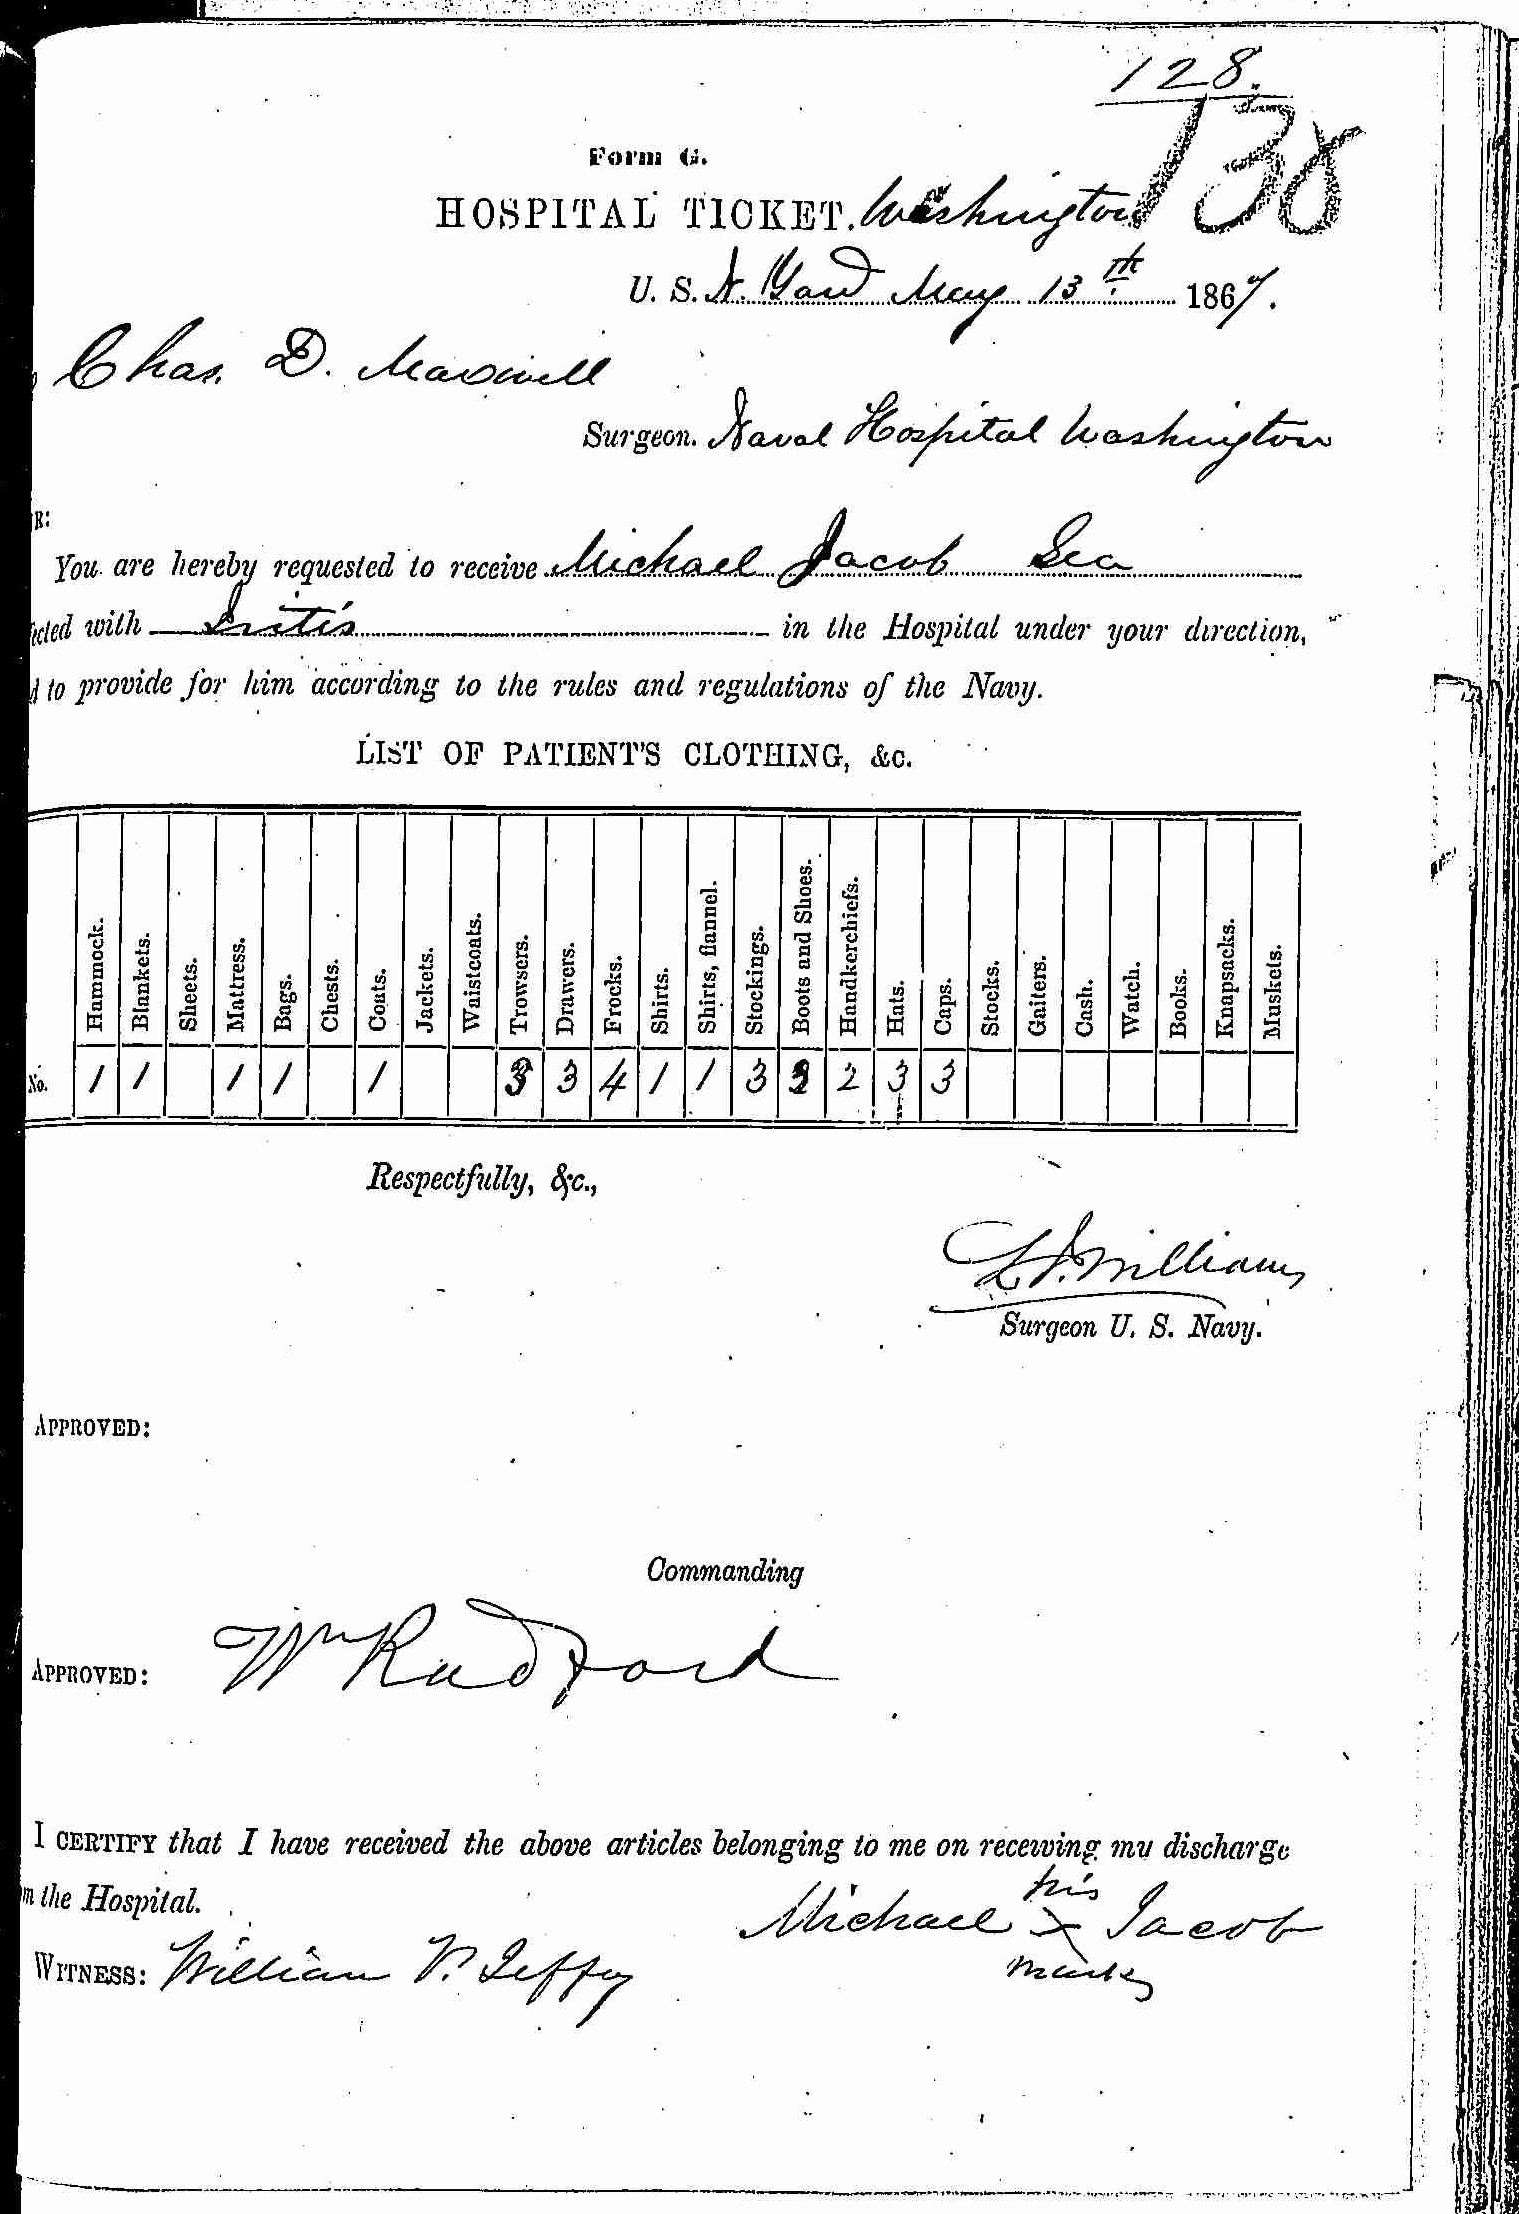 128.
138
Form G.
HOSPITAL TICKET. Washington
U. S. N. Yard May 13th 1867.
Chas. D. Maxwell
Surgeon. Naval Hospital Washington
R:
You are hereby requested to receive Michael Jacob Sea
cted with Iritis in the Hospital under your direction,
d to provide for him according to the rules and regulations of the Navy.
LIST OF PATIENT'S CLOTHING, &c.
Hammock. Blankets. Sheets. Mattress. Bags. Chests. Coats. Jackets. Waistcoats. Trowsers. Drawers. Frocks. Shirts. Shirts, flannel. Stockings. Boots and Shoes. Handkerchiefs. Hats. Caps. Stocks. Gaiters. Cash. Watch. Books. Knapsacks. Muskets.
No. 1 1 1 1 1 3 3 4 1 1 3 2 3 3
Respectfully, &c.,
Williams
Surgeon U. S. Navy.
APPROVED:
Commanding
APPROVED: Wm Radford
I CERTIFY that I have received the above articles belonging to me on receiving my discharge
m the Hospital.
his
Michael x Jacob
mark
WITNESS: William V.